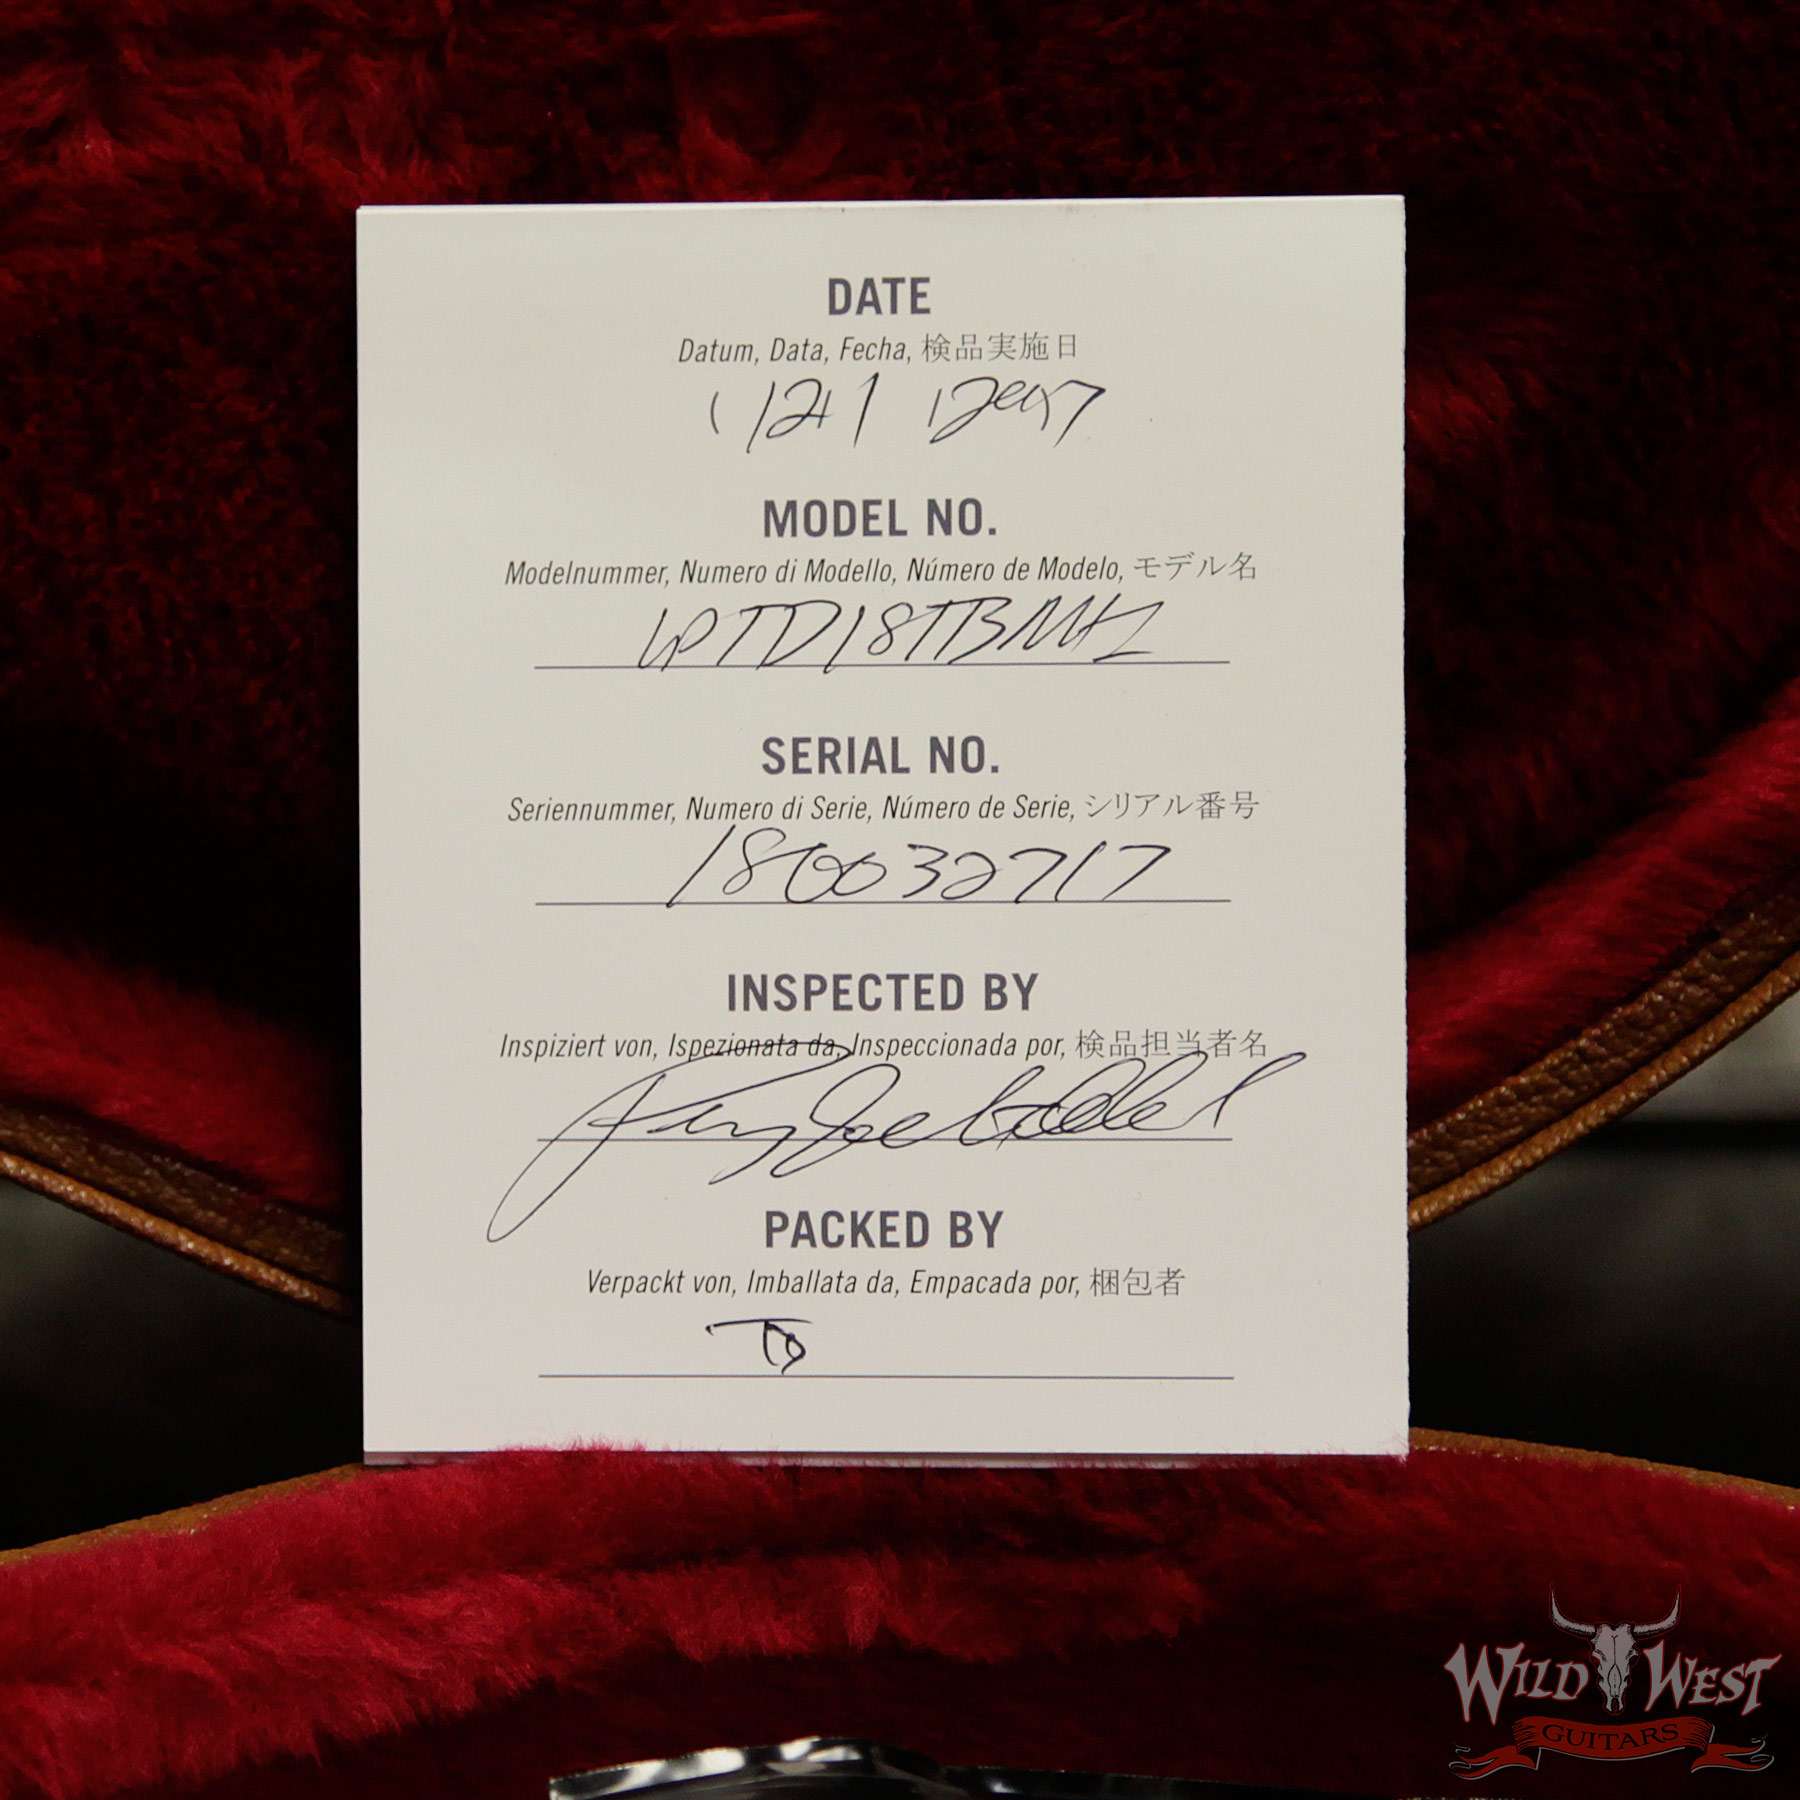 DATE
Datum, Data, Fecha, 検品実施日
MODEL NO.
Modelnummer, Numero di Modello, Número de Modelo, モデル名
LPTD18TBMH1
SERIAL NO.
Seriennummer, Numero di Serie, Número de Serie, シリアル番号
180032717
INSPECTED BY
Inspiziert von, Ispezionata da, Inspeccionada por, 検品担当者名
PACKED BY
Verpackt von, Imballata da, Empacada por, 梱包者
WILD WEST
GUITARS